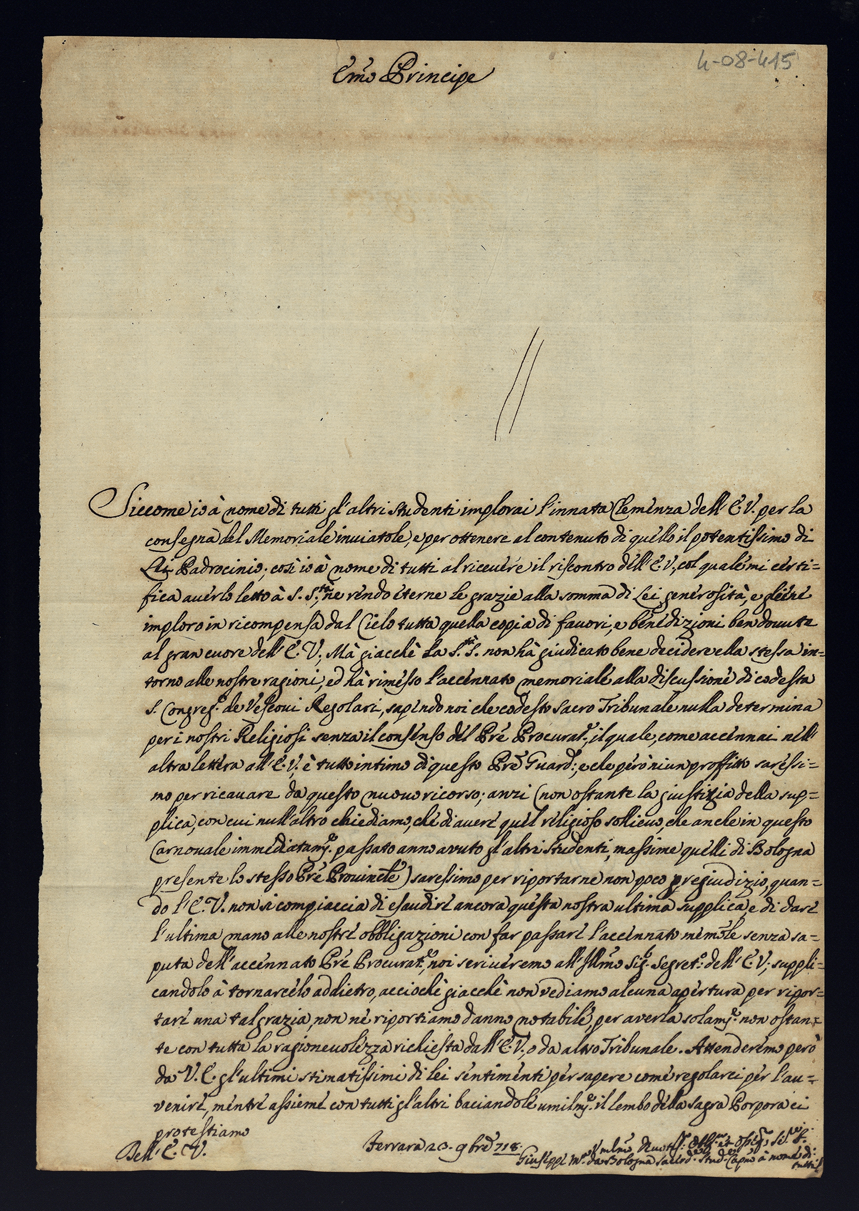 4-08-415
Em̃o Principe
Siccome io à nome di tutti gl'altri studenti implorai l'innata Clemenza dell'E.V. per la
consegna del Memoriale inviatole, e per ottenere al contenuto di quello il potentissimo di
Lei Padrocinio; così io à nome di tutti al ricevere il riscontro dell'E.V., col quale mi certi=
fica averlo letto à S. S.tà, ne rendo eterne le grazie alla somma di Lei generosità, e
imploro in ricompensa dal Cielo tutta quella coppia di favori, e benedizioni ben dovute
al gran cuore dell'E.V. Mà giacchè La S.tà S. non hà giudicato bene decidere ella stessa in=
torno alle nostre ragioni, ed hà rimesso l'accennato memoriale alla discussione di codesta
S. Congreg.e de Vescovi Regolari, sapendo noi che codesto Sacro Tribunale nulla determina
per i nostri Religiosi senza il consenso del Pre Procurat.e, il quale, come accennai nell'
altra lettera all'E.V., è tutto intimo di questo Pre Guard.e; e che però niun proffitto saressi=
mo per ricavare da questo nuovo ricorso; anzi (non ostante la giustizia della sup=
plica, con cui null'altro chiediamo, che di avere quel religioso sollievo, che anche in questo
Carnovale immediatam.e passato anno avuto gl'altri studenti, massime quelli di Bologna
presente lo stesso Pre Provinc.le) saressimo per riportarne non poco pregiudizio, quan=
do l'E.V. non si compiaccia di esaudire ancora questa nostra ultima supplica, e di dare
l'ultima mano alle nostre obbligazioni con far passare l'accennato mem.le senza sa=
puta dell'accennato Pre Procurat.e, noi scriveremo all'Ill.mo Sig.e Segret.o dell'E.V., suppli=
candolo à tornarcelo addietro, acciochè giacchè non vediamo alcuna apertura per ripor=
tare una tal grazia, non ne riportiamo danno notabile, per averla solam.e non ostan=
te con tutta la ragionevolezza richiesta dall'E.V. o da altro Tribunale. Attenderemo però
da V.E. gl'ultimi stimatissimi di lei sentimenti per sapere come regolarci per l'av=
venire, mentre assieme con tutti gl'altri baciandole umilm.e il lembo della Sagra Porpora ci
protestiamo
Dell'E.V. Ferrara 23. 9bre 718.
Umilmo Devotiss.o et Osseq.o
Giuseppe M.a da Bologna Sacerd.e Stud.e Capno à nome di
tutti